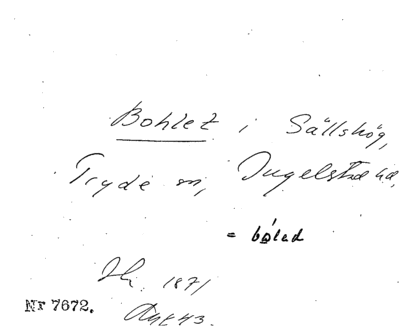 Bohlet i Sällshög,
Tryde sn, Ingelstads hd,
= bólad
1871
Nr 7672.